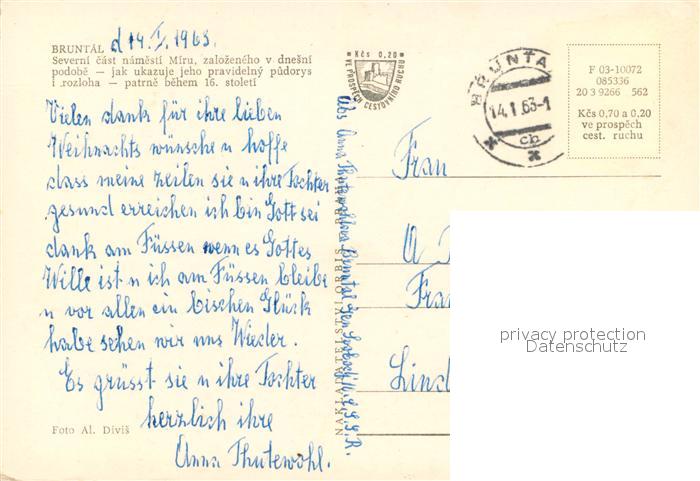 BRUNTÁL d 14. I. 1963.
Severní část náměstí Míru, založeného v dnešní
podobě — jak ukazuje jeho pravidelný půdorys
i rozloha — patrně během 16. století
Vielen dank für ihre lieben
Weihnachts wünsche u hoffe
dass meine zeilen sie u ihre Tochter
gesund erreichen ich bin Gott sei
dank am Füssen wenn es Gottes
Wille ist u ich am Füssen bleibe
u vor allen ein bischen Glück
habe sehen wir uns Wieder.
Es grüsst sie u ihre Tochter
herzlich ihre
Anna Thutewohl.
Foto Al. Diviš
Kčs 0,20
VE PROSPĚCH CESTOVNÍHO RUCHU
Abs Anna Thutewohlova Bruntal
Č.S.S.R.
BRUNTÁL
14.1.63-1
cb
F 03-10072
085336
20 3 9266 562
Kčs 0,70 a 0,20
ve prospěch
cest. ruchu
Frau
A
Fra
Lind
privacy protection
Datenschutz